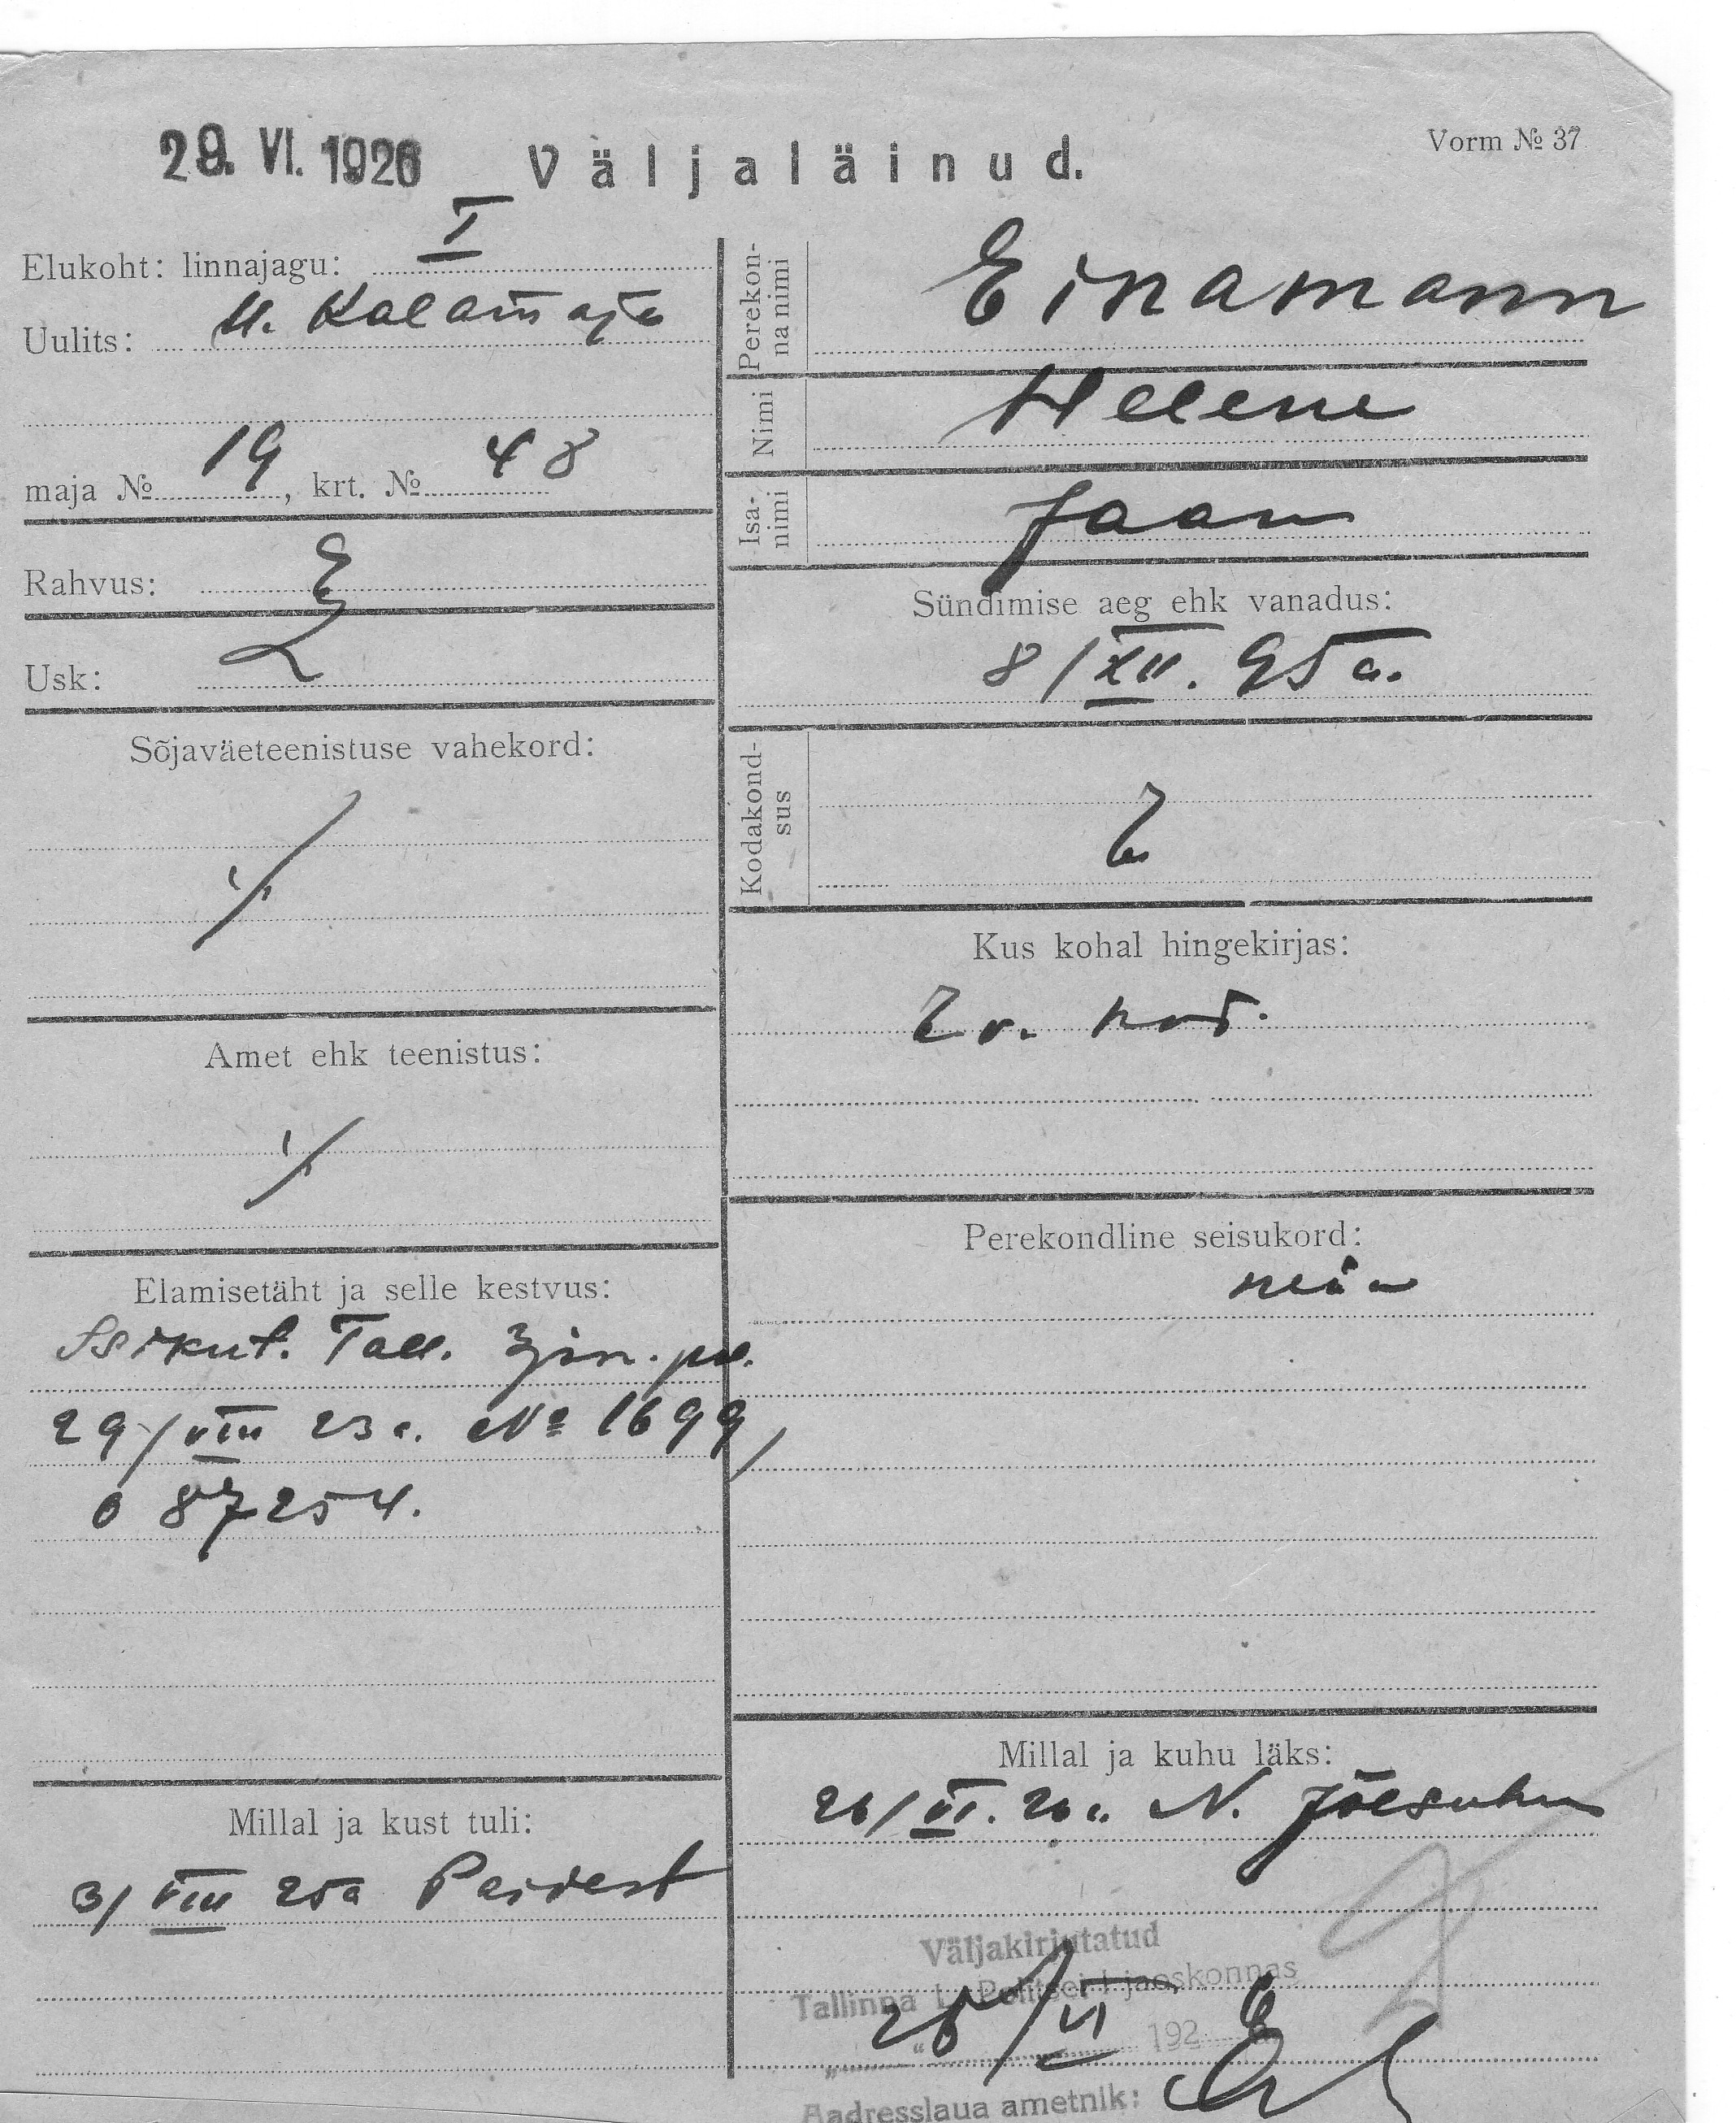 29. VI. 1926 Väljaläinud.
Vorm № 37
Elukoht: linnajagu: I
Uulits: U. Kalamaja
maja № 19, krt. № 48
Rahvus: E
Usk: L
Sõjaväeteenistuse vahekord:
Amet ehk teenistus:
Elamisetäht ja selle kestvus:
Isikut. Tall. jsk. pol.
29/VIII 23 a. № 1699,
087254.
Millal ja kust tuli:
3/VIII 25a Paidest
Perekon-
na nimi
Einamann
Nimi Helene
Isa-
nimi
Jaan
Sündimise aeg ehk vanadus:
8/XII. 95 a.
Kodakond-
sus
E
Kus kohal hingekirjas:
E v. kod.
Perekondline seisukord:
Millal ja kuhu läks:
26/VI. 26 a. N. Jõesuhu
Väljakirjutatud
Tallinna L. Politsei I jaoskonnas
26/VI 192
Aadresslaua ametnik: